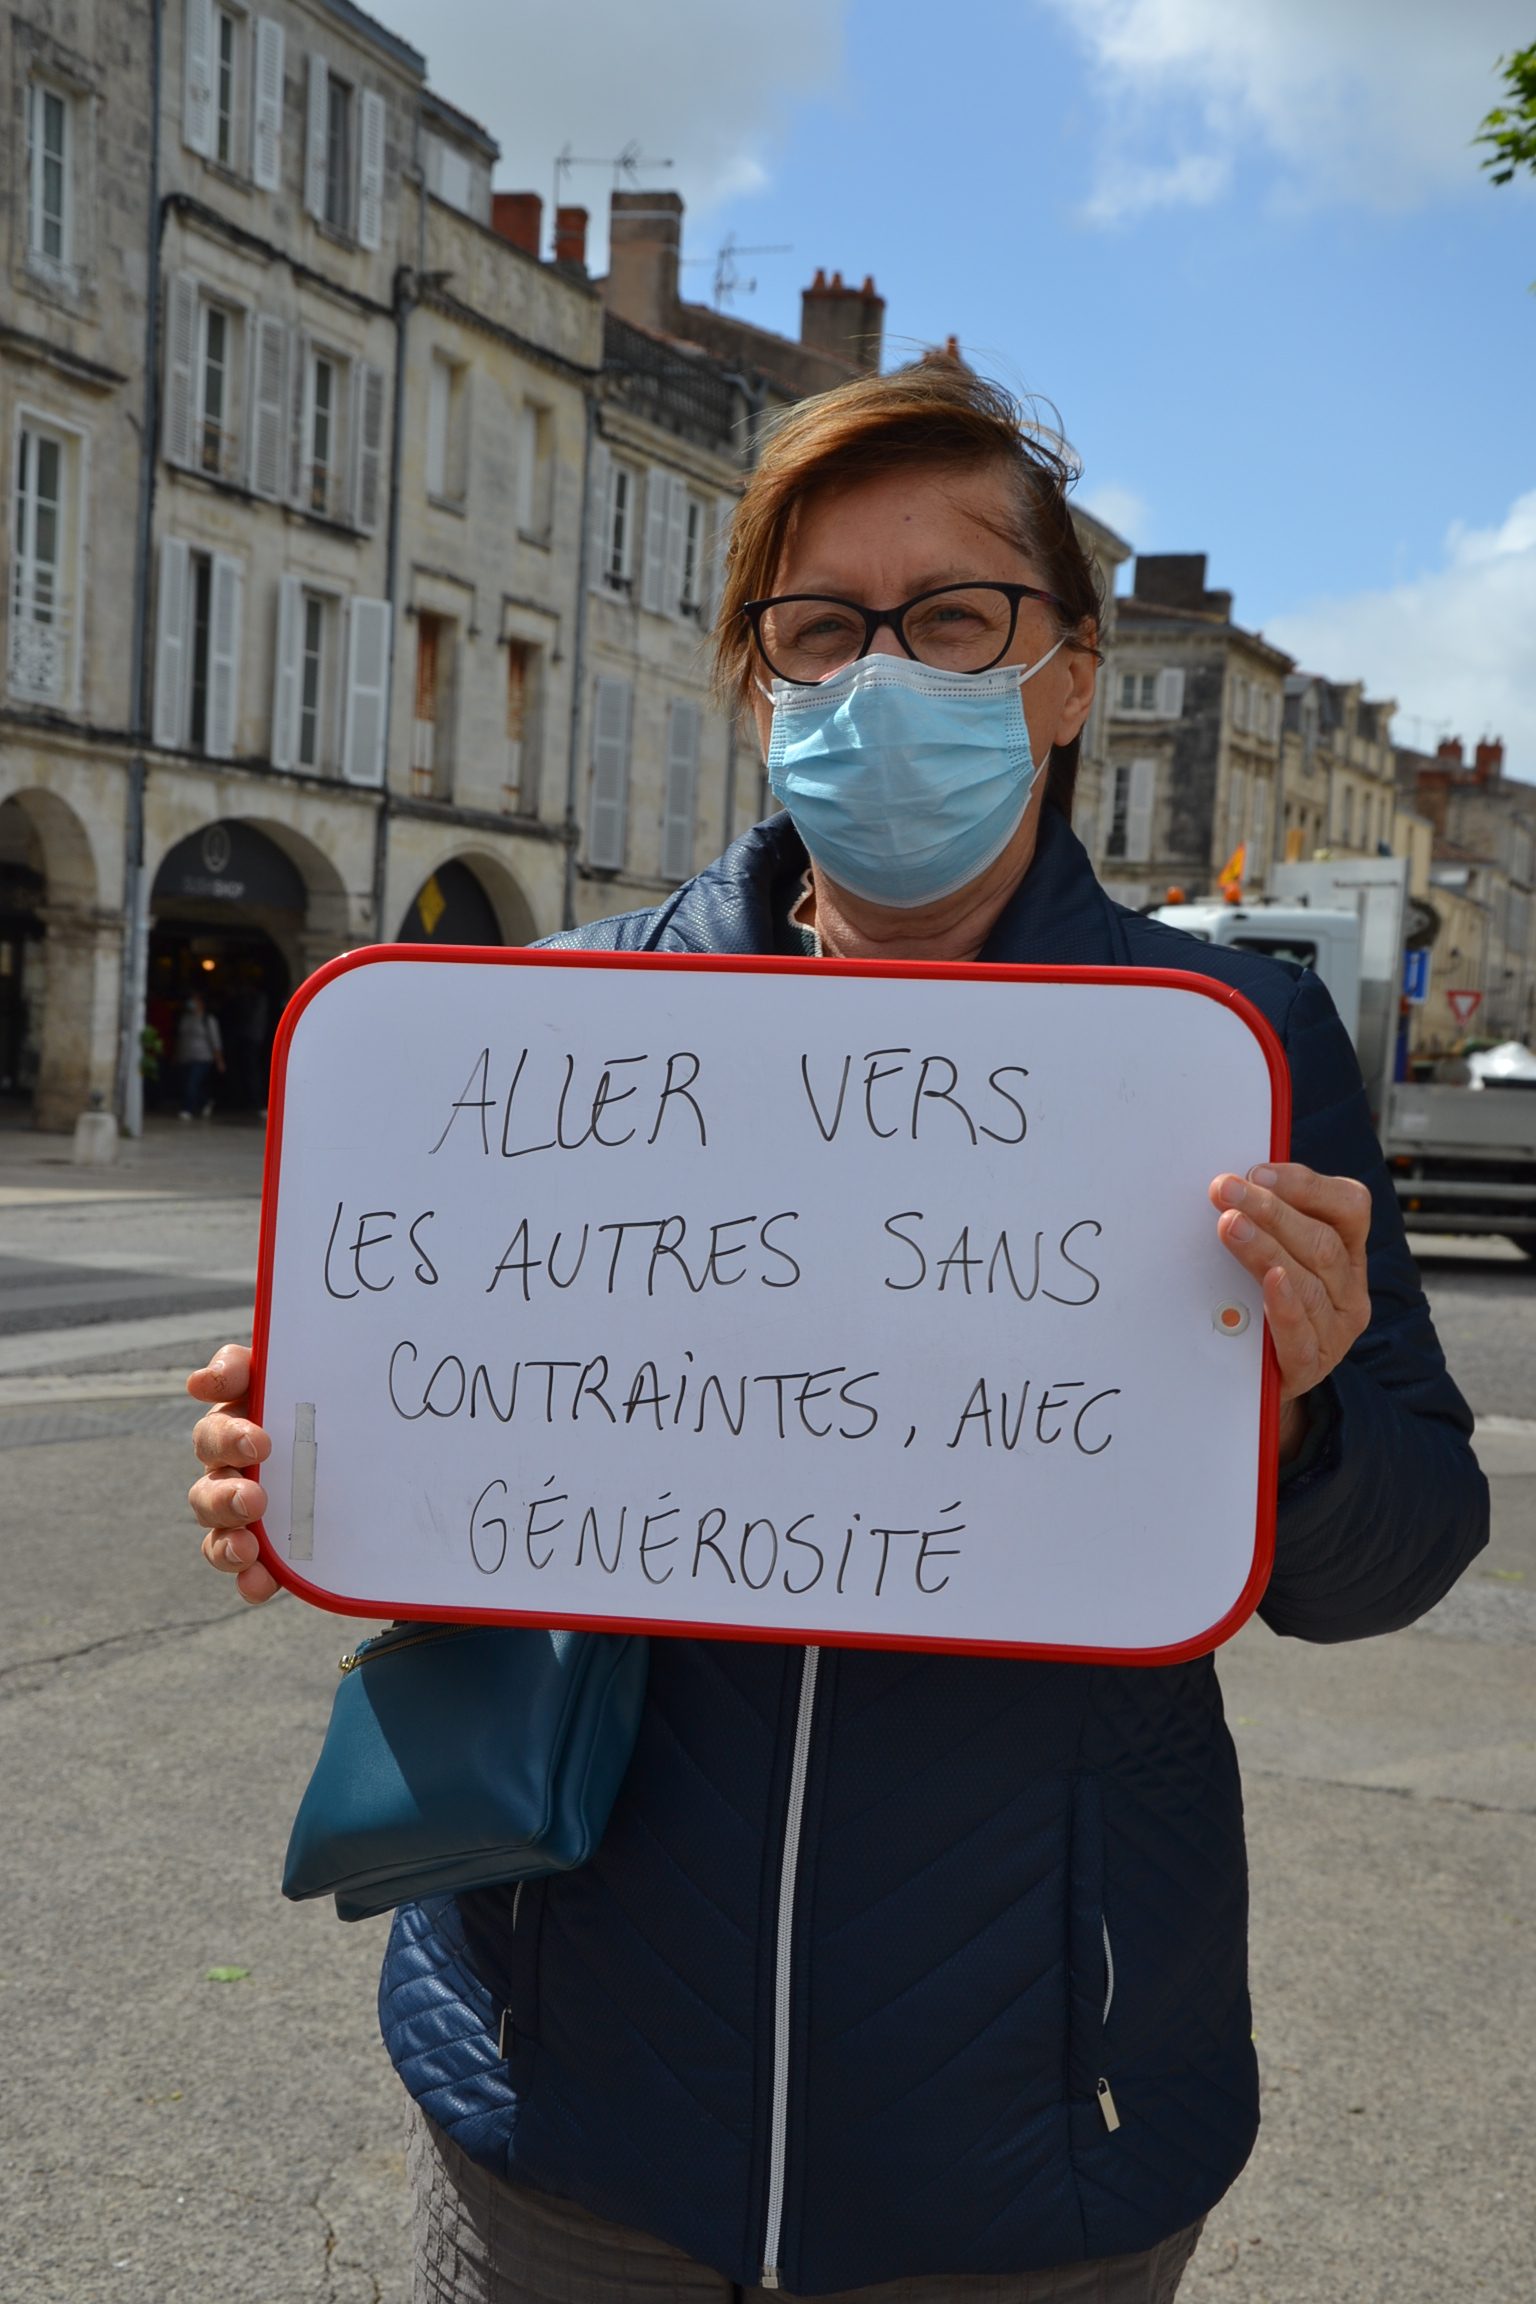 ALLER VERS
LES AUTRES SANS
CONTRAiNTES, AVEC
GÉNÉROSiTÉ